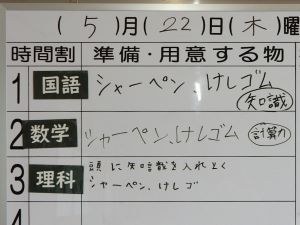 (5)月(22)日(木)曜
時間割 準備・用意する物
1 国語 シャーペン、けしゴム 知識
2 数学 シャーペン、けしゴム 計算力
3 理科 頭に知識を入れとく
シャーペン、けしゴ
4